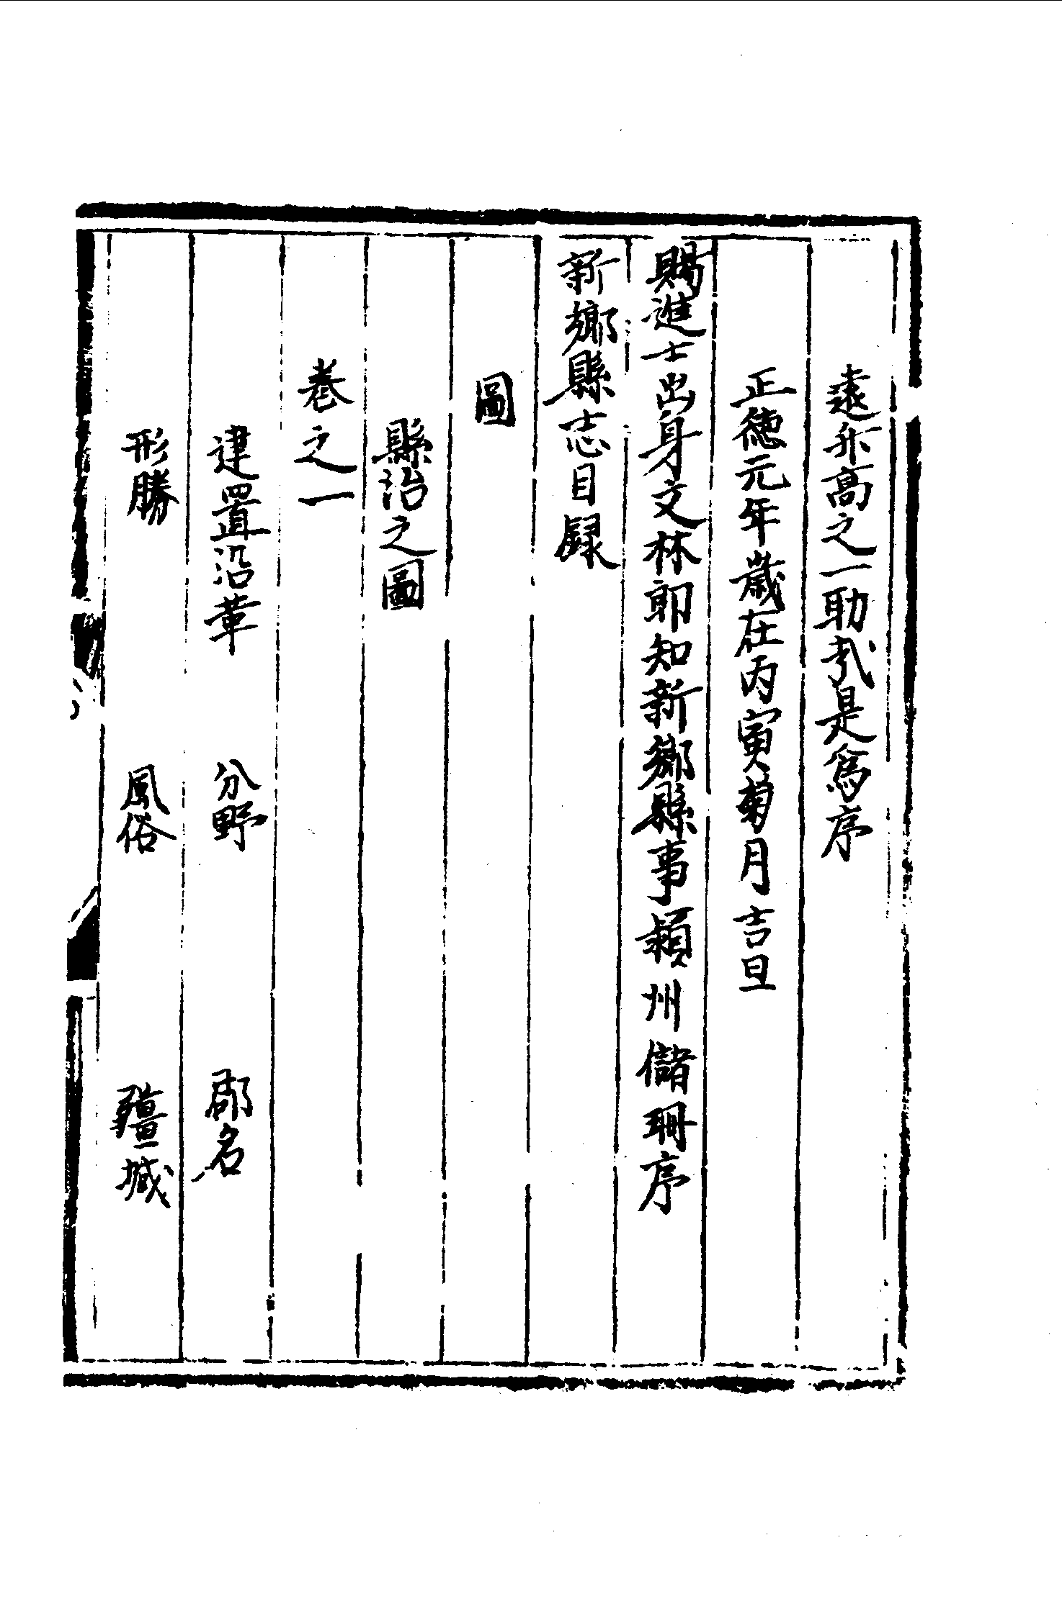 遠升高之一助乎是為序
正徳元年歳在丙寅菊月吉旦
賜進士出身文林郎知新鄉縣事潁州儲珊序
新鄉縣志目録
圖
縣治之圖
卷之一
建置沿革 分野 郡名
形勝 風俗 疆域